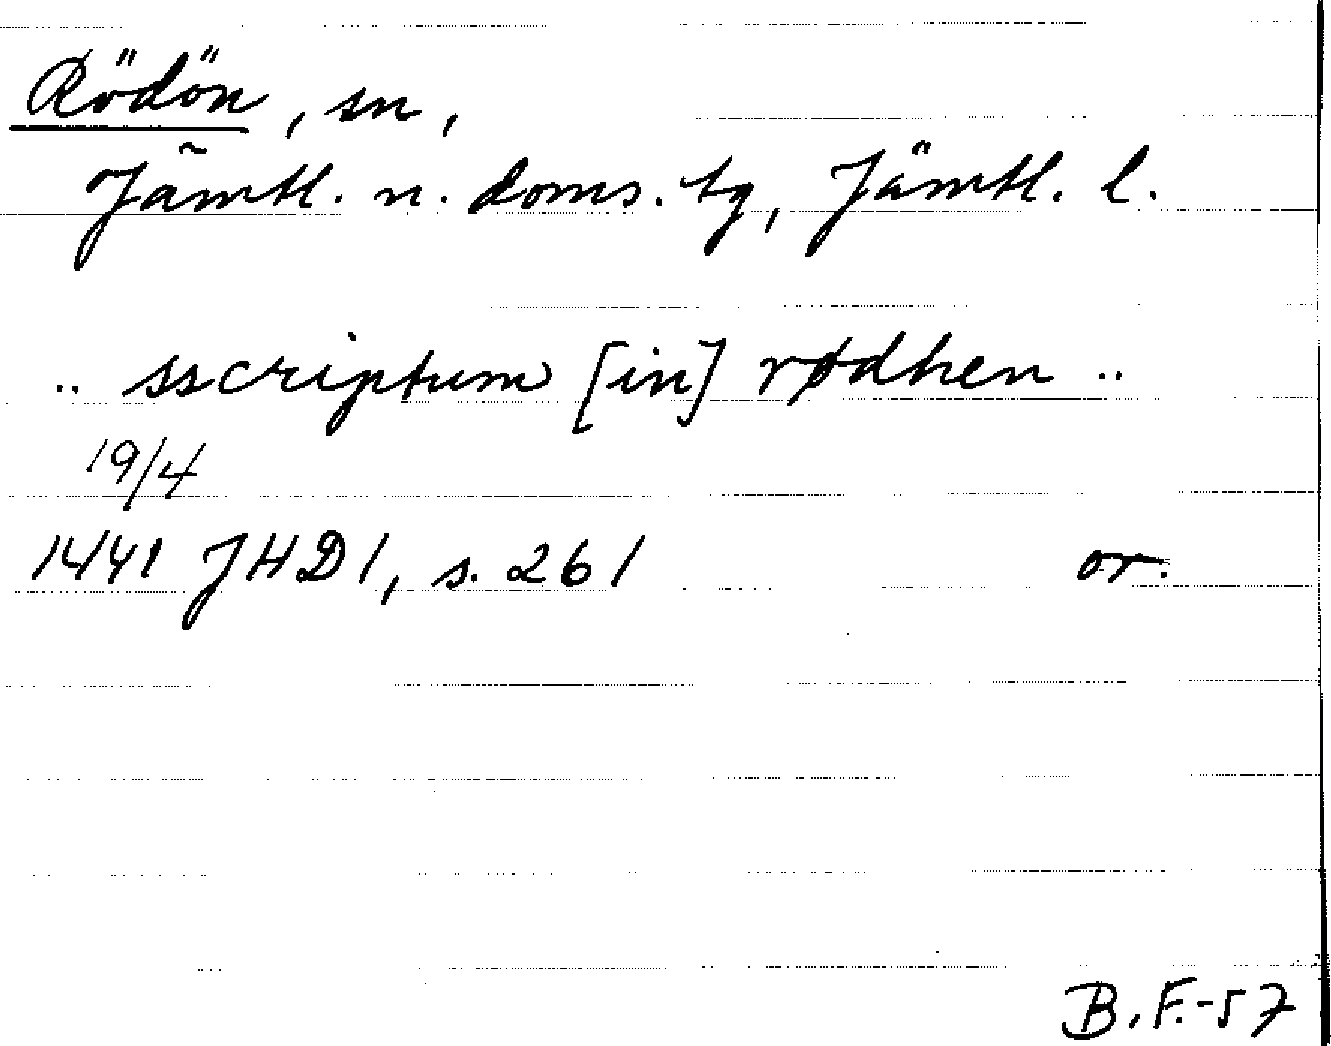 Rödön, sn,
Jämtl. n. doms. tg, Jämtl. l.
.. sscriptum [in] rødhen ..
19/4
1441 JHD 1, s. 261 or.
B.F.-57